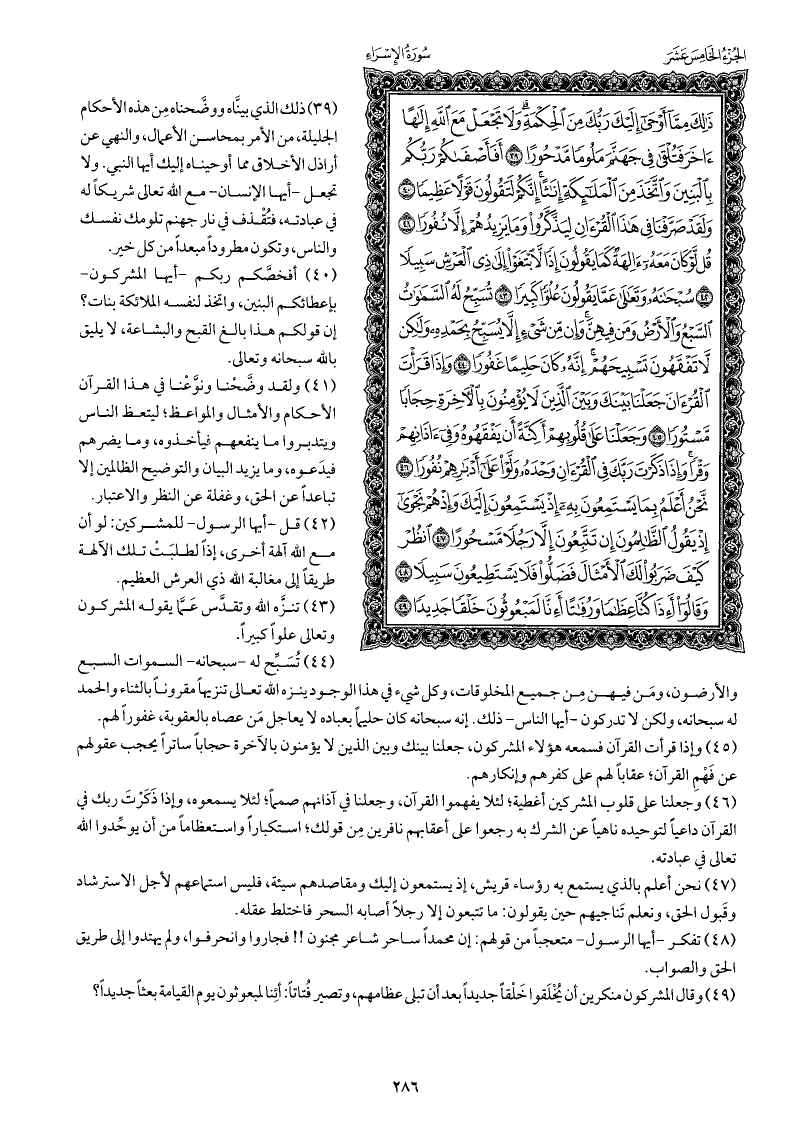 الجُزْءُ الخَامِسَ عَشَرَ
سُورَةُ الإِسْرَاءِ
ذَٰلِكَ مِمَّآ أَوْحَىٰٓ إِلَيْكَ رَبُّكَ مِنَ ٱلْحِكْمَةِ ۗ وَلَا تَجْعَلْ مَعَ ٱللَّهِ إِلَٰهًا
ءَاخَرَ فَتُلْقَىٰ فِى جَهَنَّمَ مَلُومًا مَّدْحُورًا ٣٩ أَفَأَصْفَىٰكُمْ رَبُّكُم
بِٱلْبَنِينَ وَٱتَّخَذَ مِنَ ٱلْمَلَٰٓئِكَةِ إِنَٰثًا ۚ إِنَّكُمْ لَتَقُولُونَ قَوْلًا عَظِيمًا ٤٠
وَلَقَدْ صَرَّفْنَا فِى هَٰذَا ٱلْقُرْءَانِ لِيَذَّكَّرُوا۟ وَمَا يَزِيدُهُمْ إِلَّا نُفُورًا ٤١
قُل لَّوْ كَانَ مَعَهُۥٓ ءَالِهَةٌ كَمَا يَقُولُونَ إِذًا لَّٱبْتَغَوْا۟ إِلَىٰ ذِى ٱلْعَرْشِ سَبِيلًا
٤٢ سُبْحَٰنَهُۥ وَتَعَٰلَىٰ عَمَّا يَقُولُونَ عُلُوًّا كَبِيرًا ٤٣ تُسَبِّحُ لَهُ ٱلسَّمَٰوَٰتُ
ٱلسَّبْعُ وَٱلْأَرْضُ وَمَن فِيهِنَّ ۚ وَإِن مِّن شَىْءٍ إِلَّا يُسَبِّحُ بِحَمْدِهِۦ وَلَٰكِن
لَّا تَفْقَهُونَ تَسْبِيحَهُمْ ۗ إِنَّهُۥ كَانَ حَلِيمًا غَفُورًا ٤٤ وَإِذَا قَرَأْتَ
ٱلْقُرْءَانَ جَعَلْنَا بَيْنَكَ وَبَيْنَ ٱلَّذِينَ لَا يُؤْمِنُونَ بِٱلْءَاخِرَةِ حِجَابًا
مَّسْتُورًا ٤٥ وَجَعَلْنَا عَلَىٰ قُلُوبِهِمْ أَكِنَّةً أَن يَفْقَهُوهُ وَفِىٓ ءَاذَانِهِمْ
وَقْرًا ۚ وَإِذَا ذَكَرْتَ رَبَّكَ فِى ٱلْقُرْءَانِ وَحْدَهُۥ وَلَّوْا۟ عَلَىٰٓ أَدْبَٰرِهِمْ نُفُورًا ٤٦
نَّحْنُ أَعْلَمُ بِمَا يَسْتَمِعُونَ بِهِۦٓ إِذْ يَسْتَمِعُونَ إِلَيْكَ وَإِذْ هُمْ نَجْوَىٰٓ
إِذْ يَقُولُ ٱلظَّٰلِمُونَ إِن تَتَّبِعُونَ إِلَّا رَجُلًا مَّسْحُورًا ٤٧ ٱنظُرْ
كَيْفَ ضَرَبُوا۟ لَكَ ٱلْأَمْثَالَ فَضَلُّوا۟ فَلَا يَسْتَطِيعُونَ سَبِيلًا ٤٨
وَقَالُوٓا۟ أَءِذَا كُنَّا عِظَٰمًا وَرُفَٰتًا أَءِنَّا لَمَبْعُوثُونَ خَلْقًا جَدِيدًا ٤٩
(٣٩) ذلك الذي بينَّاه ووضَّحناه مِن هذه الأحكام
الجليلة، من الأمر بمحاسن الأعمال، والنهي عن
أراذل الأخلاق مما أوحيناه إليك أيها النبي. ولا
تجعل -أيها الإنسان- مع الله تعالى شريكاً له
في عبادته، فتُقْذف في نار جهنم تلومك نفسك
والناس، وتكون مطروداً مبعداً من كل خير.
(٤٠) أفخصَّكم ربكم -أيها المشركون-
بإعطائكم البنين، واتخذ لنفسه الملائكة بنات؟
إن قولكم هذا بالغ القبح والبشاعة، لا يليق
بالله سبحانه وتعالى.
(٤١) ولقد وضَّحْنا ونوَّعْنا في هذا القرآن
الأحكام والأمثال والمواعظ؛ ليتعظ الناس
ويتدبروا ما ينفعهم فيأخذوه، وما يضرهم
فيدَعوه، وما يزيد البيان والتوضيح الظالمين إلا
تباعداً عن الحق، وغفلة عن النظر والاعتبار.
(٤٢) قل -أيها الرسول- للمشركين: لو أن
مع الله آلهة أخرى، إذاً لطلبَتْ تلك الآلهة
طريقاً إلى مغالبة الله ذي العرش العظيم.
(٤٣) تنزَّه الله وتقدَّس عَمَّا يقوله المشركون
وتعالى علواً كبيراً.
(٤٤) تُسَبِّح له -سبحانه- السموات السبع
والأرضون، ومَن فيهن مِن جميع المخلوقات، وكل شيء في هذا الوجود ينزه الله تعالى تنزيهاً مقروناً بالثناء والحمد
له سبحانه، ولكن لا تدركون -أيها الناس- ذلك. إنه سبحانه كان حليماً بعباده لا يعاجل مَن عصاه بالعقوبة، غفوراً لهم.
(٤٥) وإذا قرأت القرآن فسمعه هؤلاء المشركون، جعلنا بينك وبين الذين لا يؤمنون بالآخرة حجاباً ساتراً يحجب عقولهم
عن فَهْمِ القرآن؛ عقاباً لهم على كفرهم وإنكارهم.
(٤٦) وجعلنا على قلوب المشركين أغطية؛ لئلا يفهموا القرآن، وجعلنا في آذانهم صمماً؛ لئلا يسمعوه، وإذا ذَكَرْتَ ربك في
القرآن داعياً لتوحيده ناهياً عن الشرك به رجعوا على أعقابهم نافرين مِن قولك؛ استكباراً واستعظاماً من أن يوحِّدوا الله
تعالى في عبادته.
(٤٧) نحن أعلم بالذي يستمع به رؤساء قريش، إذ يستمعون إليك ومقاصدهم سيئة، فليس استماعهم لأجل الاسترشاد
وقَبول الحق، ونعلم تَناجيهم حين يقولون: ما تتبعون إلا رجلاً أصابه السحر فاختلط عقله.
(٤٨) تفكر -أيها الرسول- متعجباً من قولهم: إن محمداً ساحر شاعر مجنون !! فجاروا وانحرفوا، ولم يهتدوا إلى طريق
الحق والصواب.
(٤٩) وقال المشركون منكرين أن يُخْلَقوا خَلْقاً جديداً بعد أن تبلى عظامهم، وتصير فُتاتاً: أئِنا لمبعوثون يوم القيامة بعثاً جديداً؟
٢٨٦